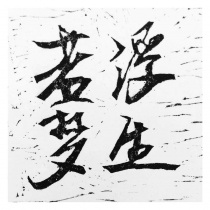 浮生
若梦